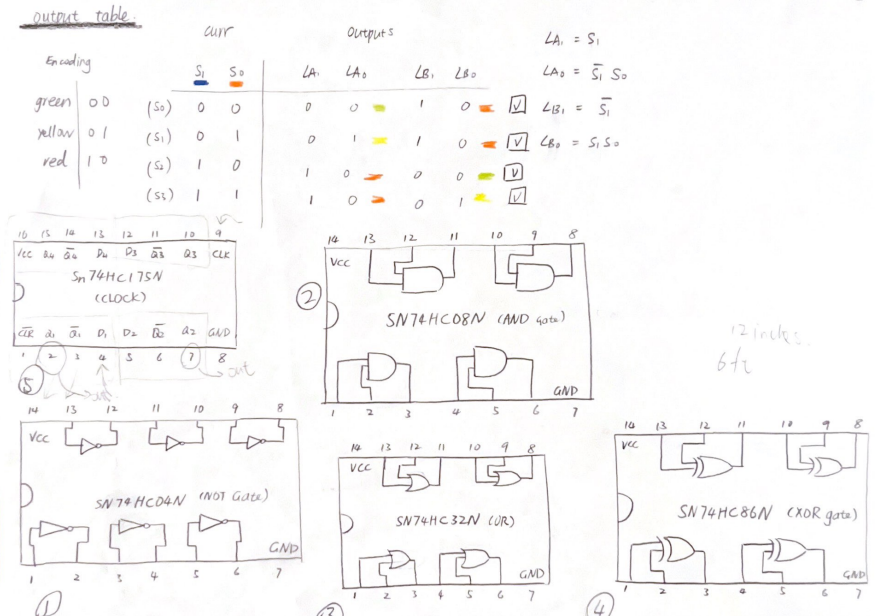 output table.
curr
Outputs
LA₁ = S₁
Encoding
S₁ S₀ LA₁ LA₀ LB₁ LB₀
LA₀ = S̅₁ S₀
green 0 0 (S₀) 0 0 0 0 1 0 V
LB₁ = S̅₁
yellow 0 1 (S₁) 0 1 0 1 1 0 V
LB₀ = S₁ S₀
red 1 0 (S₂) 1 0 1 0 0 0 V
(S₃) 1 1 1 0 0 1 V
16 15 14 13 12 11 10 9
Vcc Q₄ Q̅₄ D₄ D₃ Q̅₃ Q₃ CLK
Sn74HC175N
(CLOCK)
C̅L̅R̅ Q₁ Q̅₁ D₁ D₂ Q̅₂ Q₂ GND
1 2 3 4 5 6 7 8
5
out
out
14 13 12 11 10 9 8
Vcc
2
SN74HC08N (AND Gate)
GND
1 2 3 4 5 6 7
12 inches.
6ft
14 13 12 11 10 9 8
Vcc
SN74HC04N (NOT Gate)
GND
1 2 3 4 5 6 7
1
14 13 12 11 10 9 8
Vcc
SN74HC32N (OR)
GND
1 2 3 4 5 6 7
3
14 13 12 11 10 9 8
Vcc
SN74HC86N (XOR gate)
GND
1 2 3 4 5 6 7
4